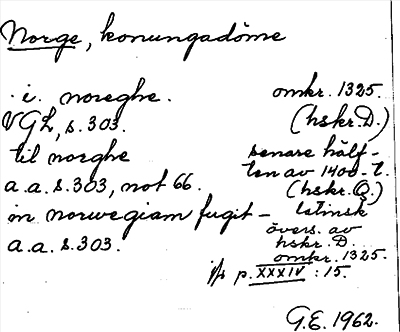 Norge, konungadöme
i. noreghe. omkr. 1325.
VGL, s. 303. (hskr. D.)
til norghe senare hälf-
a.a. s. 303, not 66. ten av 1400-t.
(hskr. O.)
in norwegiam fugit – latinsk
a.a. s. 303. övers. av
hskr. D.
omkr. 1325.
jfr p. XXXIV : 15.
G.E. 1962.